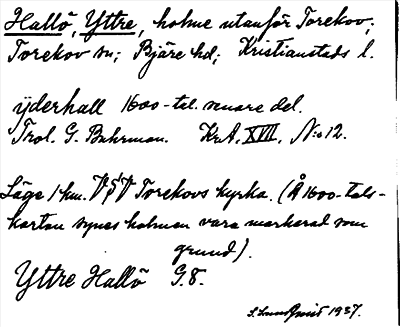 Hallö, Yttre, holme utanför Torekov;
Torekov sn; Bjäre hd; Kristianstads l.
yderhall 1600-tal. senare del.
Trol. G. Buhrman. KrA. XVII. N:o 12.
Läge 1 km. VSV Torekovs kyrka. (Å 1600-tals-
kartan synes holmen vara markerad som
grund).
Yttre Hallö G.8.
S. 1937.